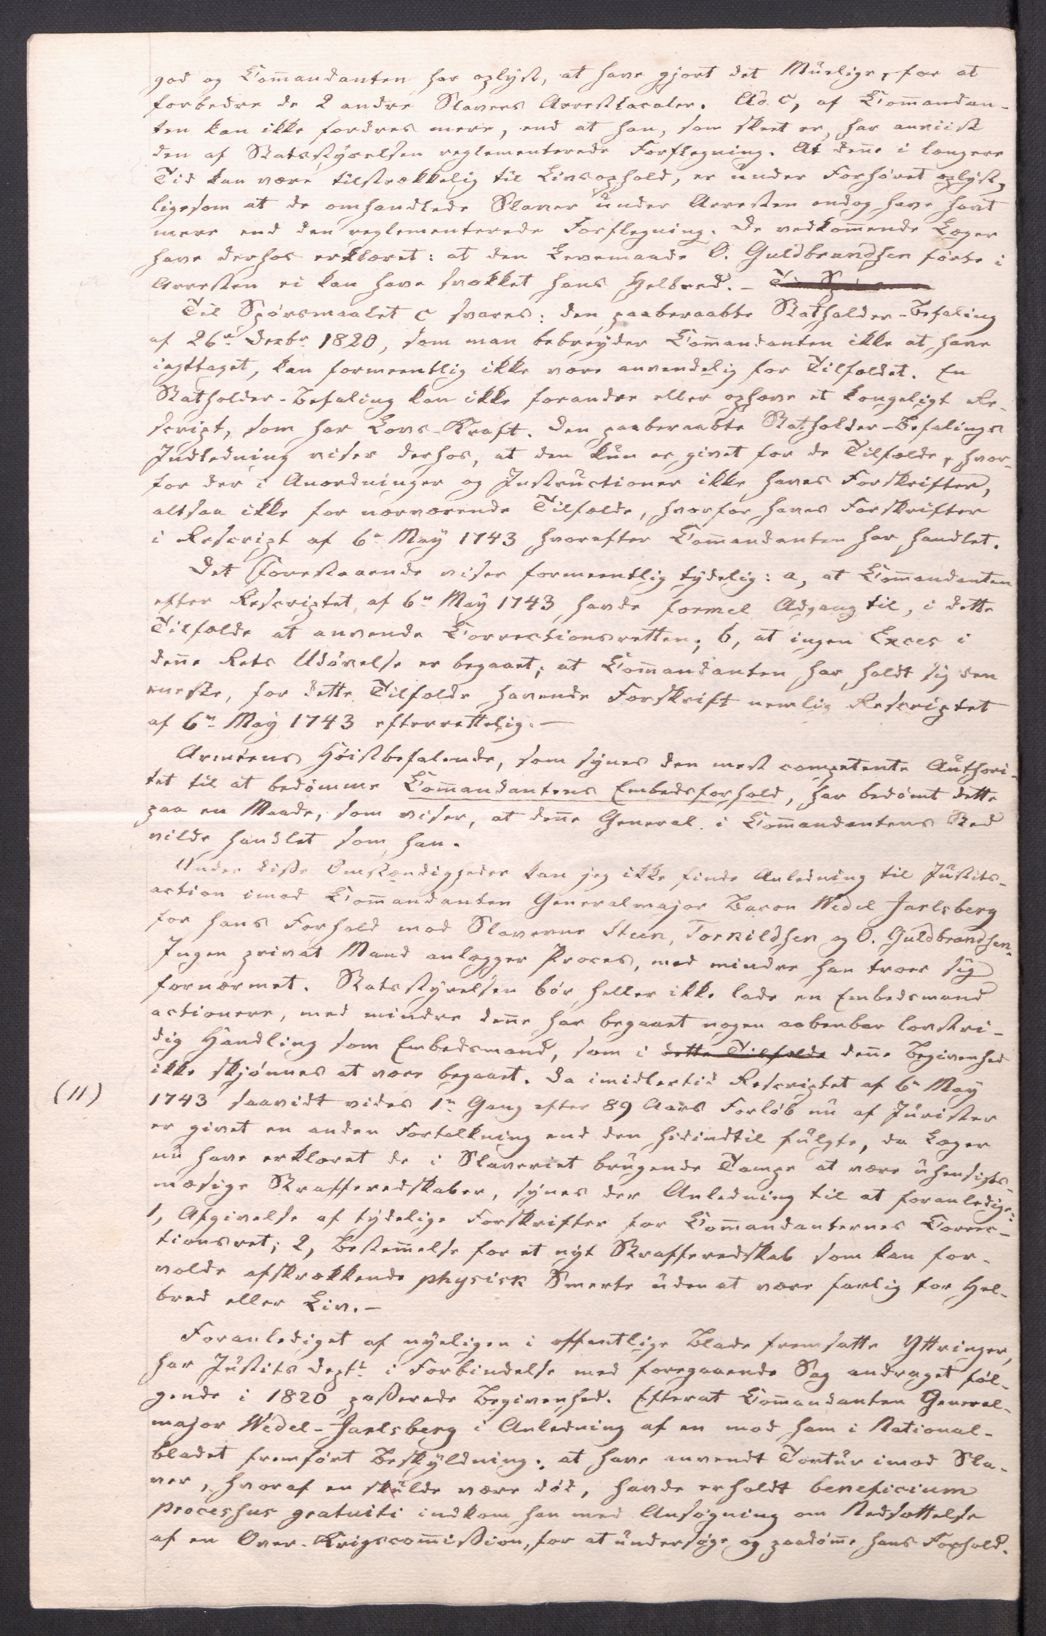 god og Com̄andanten har oplyst, at have gjort det Muelige, for at
forbedre de 2 andre Slavers Arrestlocaler. Ad. C, af Com̄andan-
ten kan ikke fordres mere, end at han, som skeet er, har anviist
den af Statsstyrelsen reglementerede Forflegning. At den̄e i længere
Tid kan være tilstrækkelig til Livsophold, er under Forhøret oplyst,
ligesom at de omhandlede Slaver under Arresten endog have havt
mere end den reglementerede Forflegning. De vedkom̄ende Læger
have derhos erklæret: at den Levemaade O. Guldbrandsen førte i
Arresten ei kan have svækket hans Helbred. –
Til Spørsmaalet c svares: den paaberaabte Statholder-Befaling
af 26de Decbr 1820, som man bebreyder Com̄andanten ikke at have
iagttaget, kan formeentlig ikke være anvendelig for Tilfældet. En
Statholder-Befaling kan ikke forandre eller ophæve et kongeligt Re-
script, som har Lovs-Kraft. Den paaberaabte Statholder-Befalings
Indledning viser derhos, at den kun er givet for de Tilfælde, hvor-
for der i Anordninger og Instructioner ikke haves Forskrifter,
altsaa ikke for nærværende Tilfælde, hvorfor haves Forskrifter
i Rescript af 6te May 1743 hvorefter Com̄andanten har handlet.
Det Forestaaende viser formeentlig tydelig: a, at Com̄andanten
efter Rescriptet af 6te May 1743 havde formel Adgang til, i dette
Tilfælde at anvende Correctionsretten; b, at ingen Exces i
den̄e Rets Udøvelse er begaaet; at Com̄andanten har holdt sig den
eneste, for dette Tilfælde havende Forskrift nemlig Rescriptet
af 6te May 1743 efterrettelig. –
Armeens Høistbefalende, som synes den mest competente Authori-
tet til at bedømme Com̄andantens Embedsforhold, har bedømt dette
paa en Maade, som viser, at den̄e General i Com̄andantens Sted
vilde handlet som han.
Under disse Omstændigheder kan jeg ikke finde Anledning til Justits-
action imod Com̄andanten Generalmajor Baron Wedel Jarlsberg
for hans Forhold mod Slaverne Steen, Torkildsen og O. Guldbrandsen.
Ingen privat Mand anlægger Proces, med mindre han troer sig
fornærmet. Statsstyrelsen bør heller ikke lade en Embedsmand
actionere, med mindre den̄e har begaaet nogen aabenbar lovstri-
dig Handling som Embedsmand, som i dette Tilfælde den̄e Begivenhed
ikke skjønnes at være begaaet. Da imidlertid Rescriptet af 6te May
(11)
1743 saavidt vides 1te Gang efter 89 Aars Forløb nu af Jurister
er givet en anden Fortolkning end den hidindtil fulgte, da Læger
nu have erklæret de i Slaveriet brugende Tampe at være uhensigts-
mæsige Strafferedskaber, synes der Anledning til at foranledige:
1, Afgivelse af tydelige Forskrifter for Com̄andanternes Correc-
tionsret; 2, Bestem̄else for et nyt Strafferedskab som kan for-
volde afskrækkende physisk Smerte uden at være farlig for Hel-
bred eller Liv. –
Foranlediget af nyeligen i offentlige Blade fremsatte Yttringer,
har Justits Dept: i Forbindelse med foregaaende Sag andraget føl-
gende i 1820 passerede Begivenhed. Efterat Com̄andanten General-
major Wedel-Jarlsberg i Anledning af en mod ham i National-
bladet fremført Beskyldning: at have anvendt Tortur imod Sla-
ver, hvoraf en skulde være død, havde erholdt beneficium
processus gratuiti indkom han med Ansøgning om Nedsættelse
af en Over-Krigscom̄ission, for at undersøge og paadøm̄e hans Forhold.